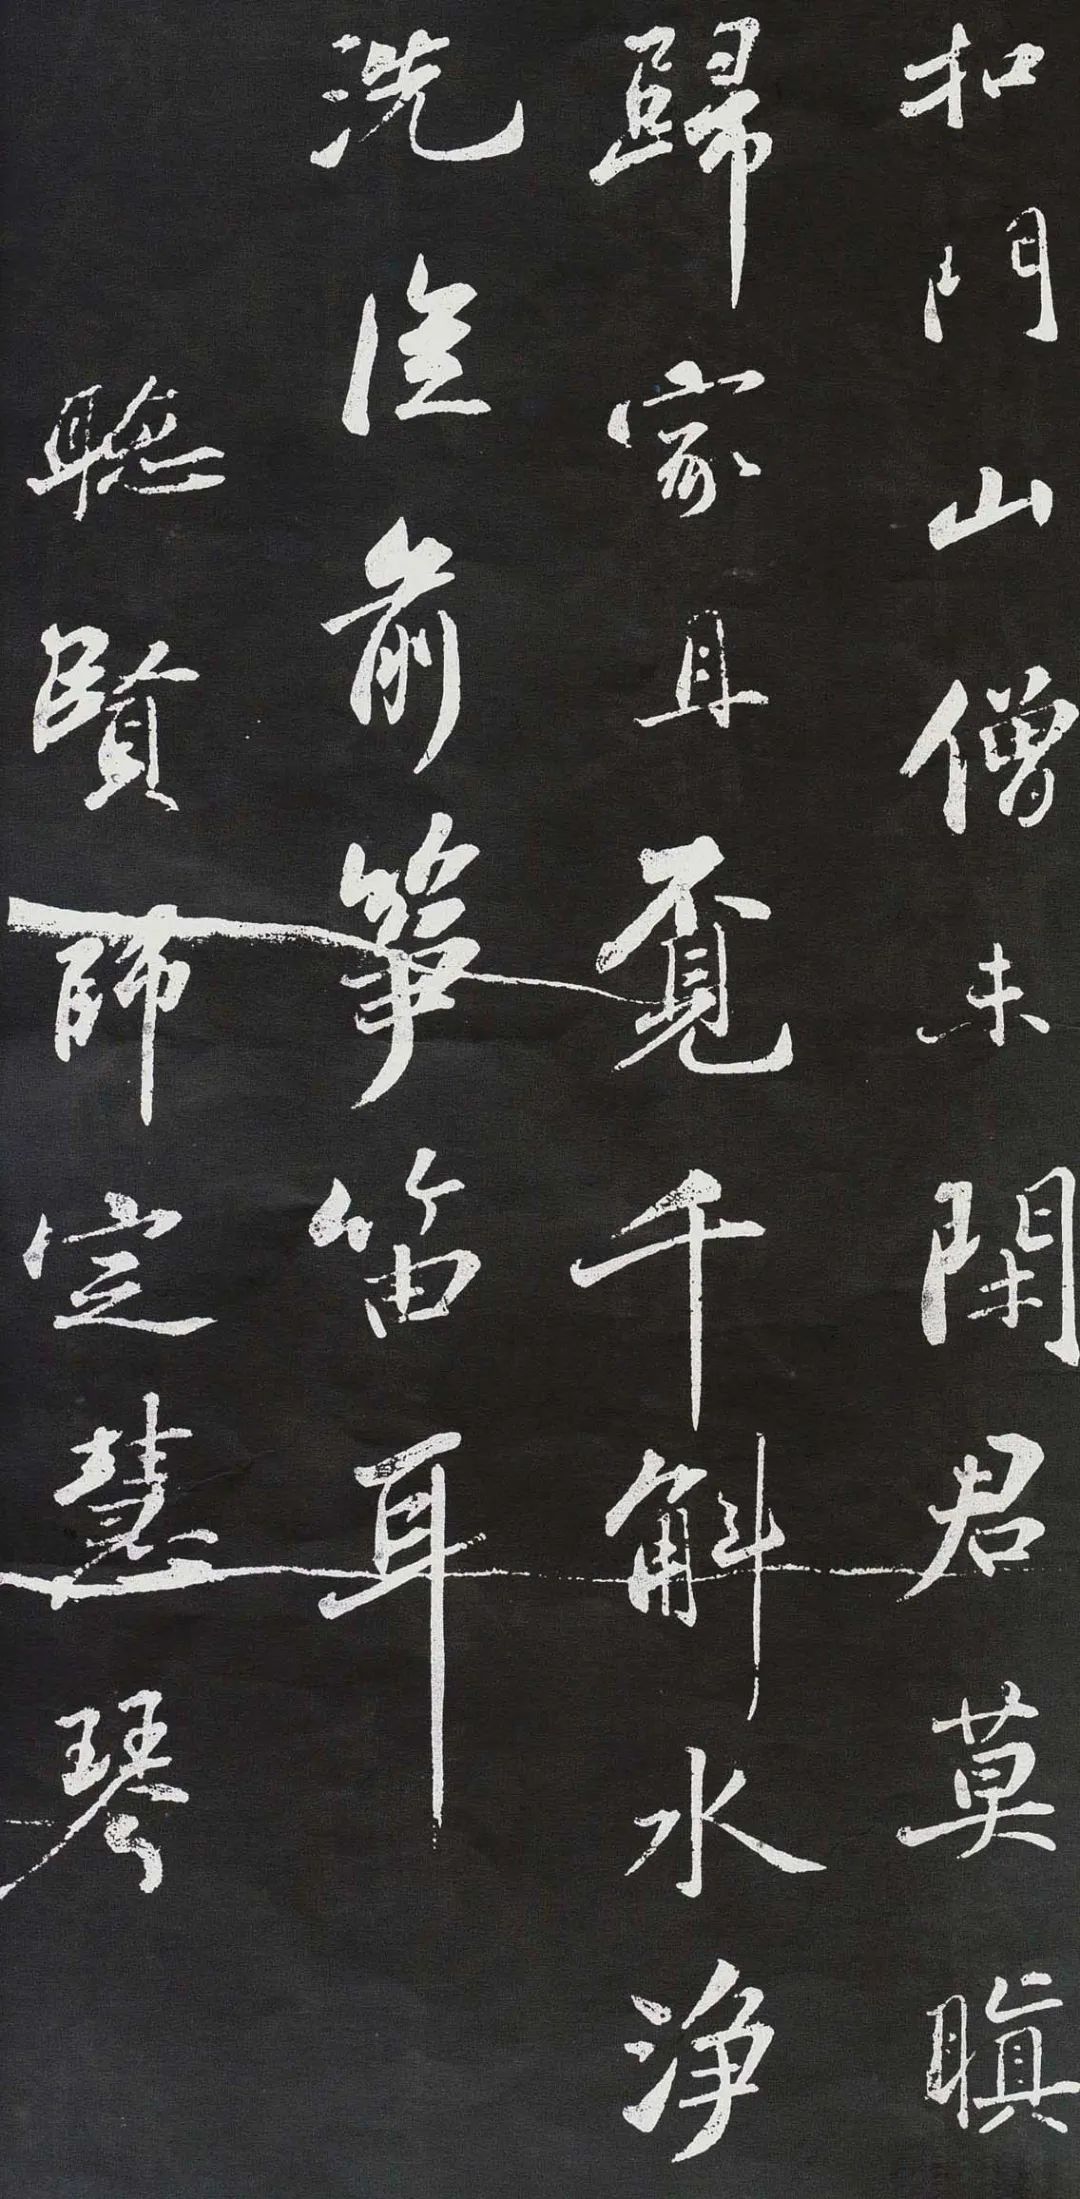 扣門山僧未閑君莫瞋
歸家且覔千斛水淨
洗從前筝笛耳
聽賢師定慧琴